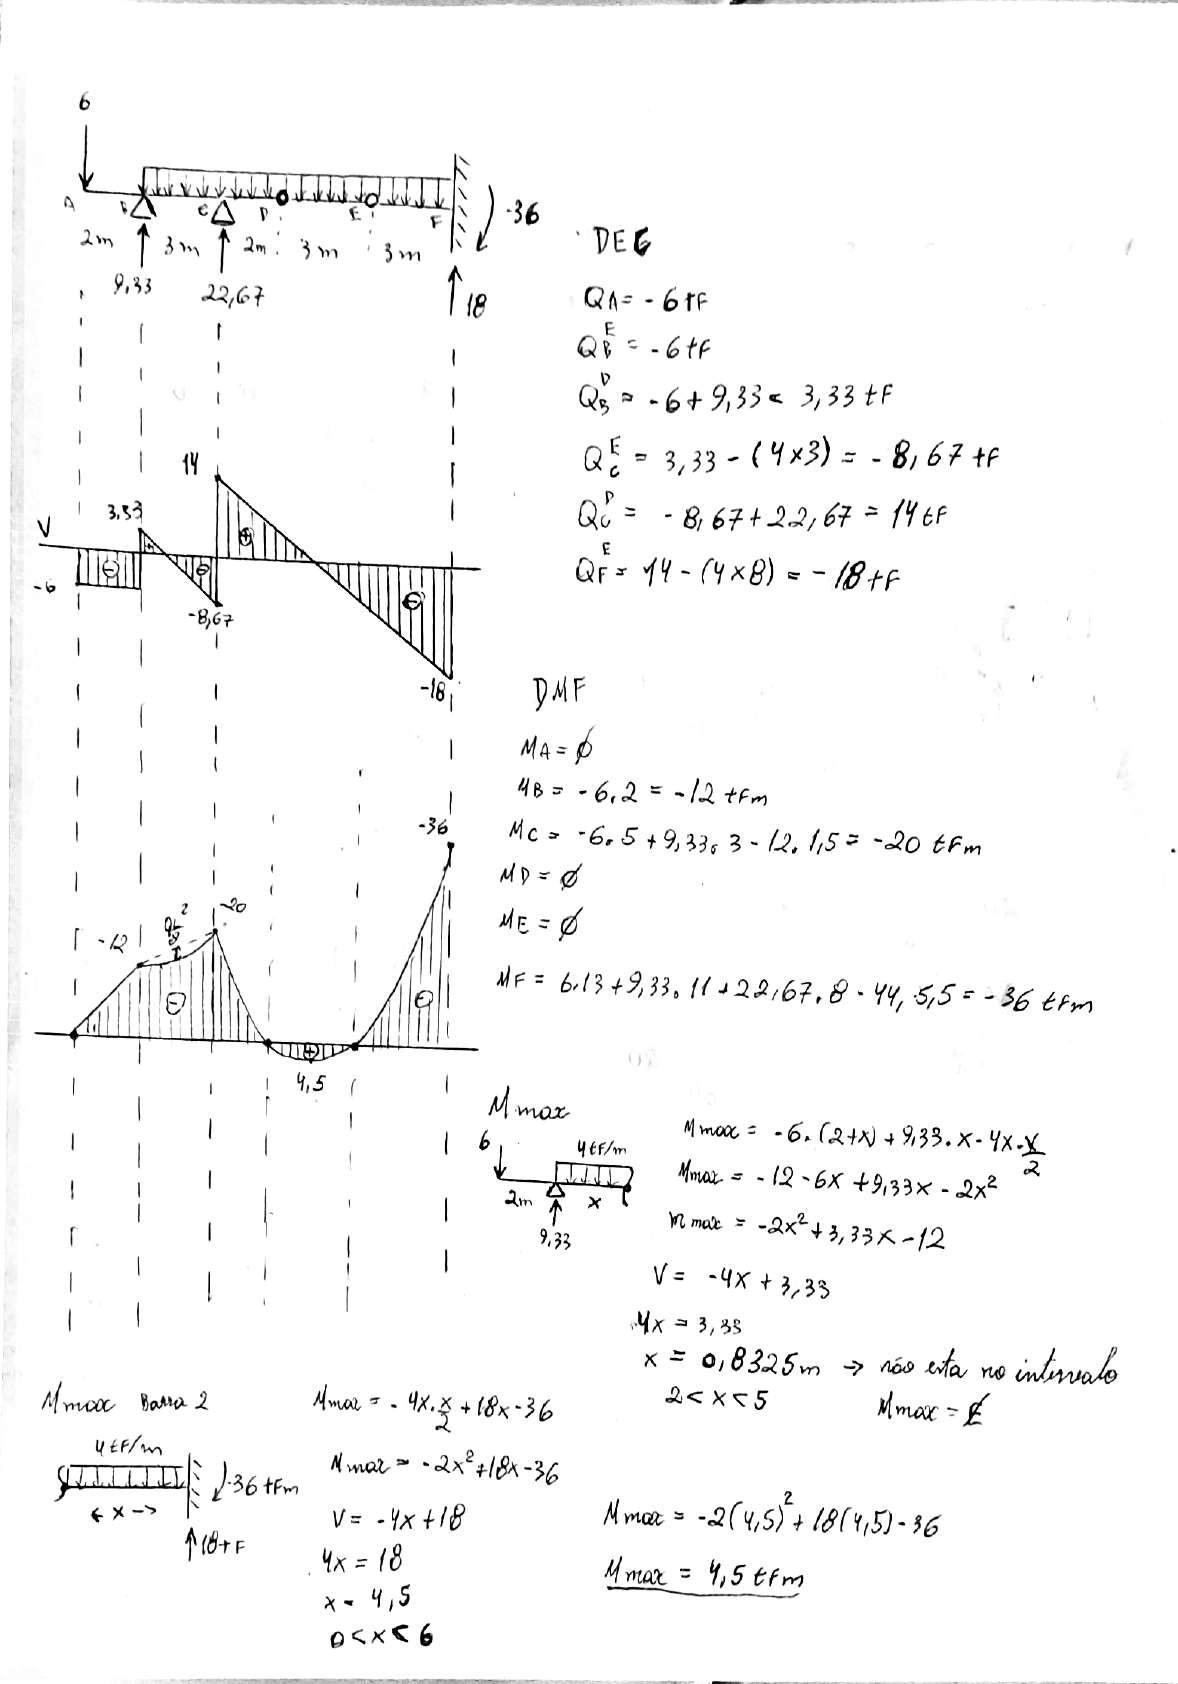 6
A B C D E F
-36
2m 3m 2m 3m 3m
9,33 22,67 18
DEC
QA = -6tF
QB^E = -6tf
QB^D = -6+9,33 = 3,33 tF
QC^E = 3,33 - (4x3) = -8,67 tF
QC^D = -8,67+22,67 = 14 tF
QF^E = 14-(4x8) = -18tF
V
14
3,33
-6
-8,67
-18
DMF
MA = ∅
MB = -6.2 = -12 tFm
MC = -6.5+9,33.3-12.1,5 = -20 tFm
MD = ∅
ME = ∅
MF = 6.13+9,33.11+22,67.8-44.5,5 = -36 tFm
-36
-20
-12
4,5
M max
6
4tF/m
2m x
9,33
Mmax = -6.(2+x)+9,33.x-4x.x/2
Mmax = -12-6x+9,33x-2x²
Mmax = -2x²+3,33x-12
V = -4x+3,33
4x = 3,33
x = 0,8325m → não esta no intervalo
2<x<5 Mmax = ∄
Mmax Barra 2
4tF/m
x
-36 tFm
18tF
Mmax = -4x.x/2+18x-36
Mmax = -2x²+18x-36
V = -4x+18
4x = 18
x = 4,5
0<x<6
Mmax = -2(4,5)²+18(4,5)-36
Mmax = 4,5 tFm